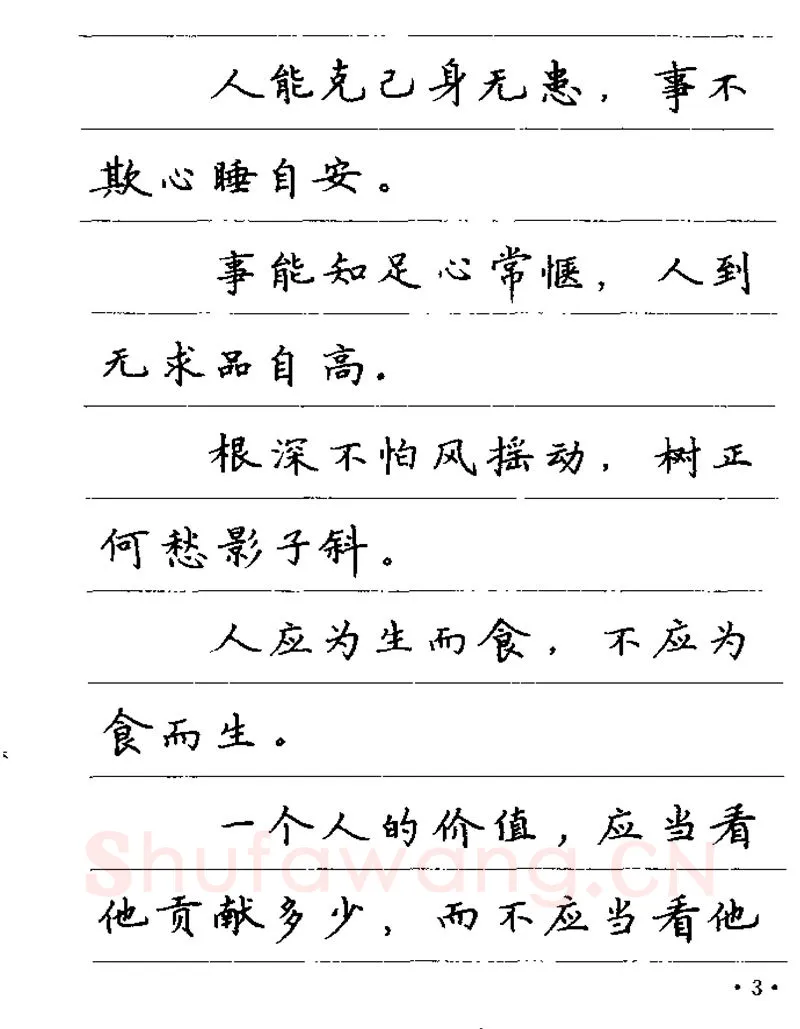 人能克己身无患，事不
欺心睡自安。
事能知足心常惬，人到
无求品自高.
根深不怕风摇动，树正
何愁影子斜。
人应为生而食，不应为
食而生。
一个人的价值，应当看
Shufawang.CN
他贡献多少，而不应当看他
·3·